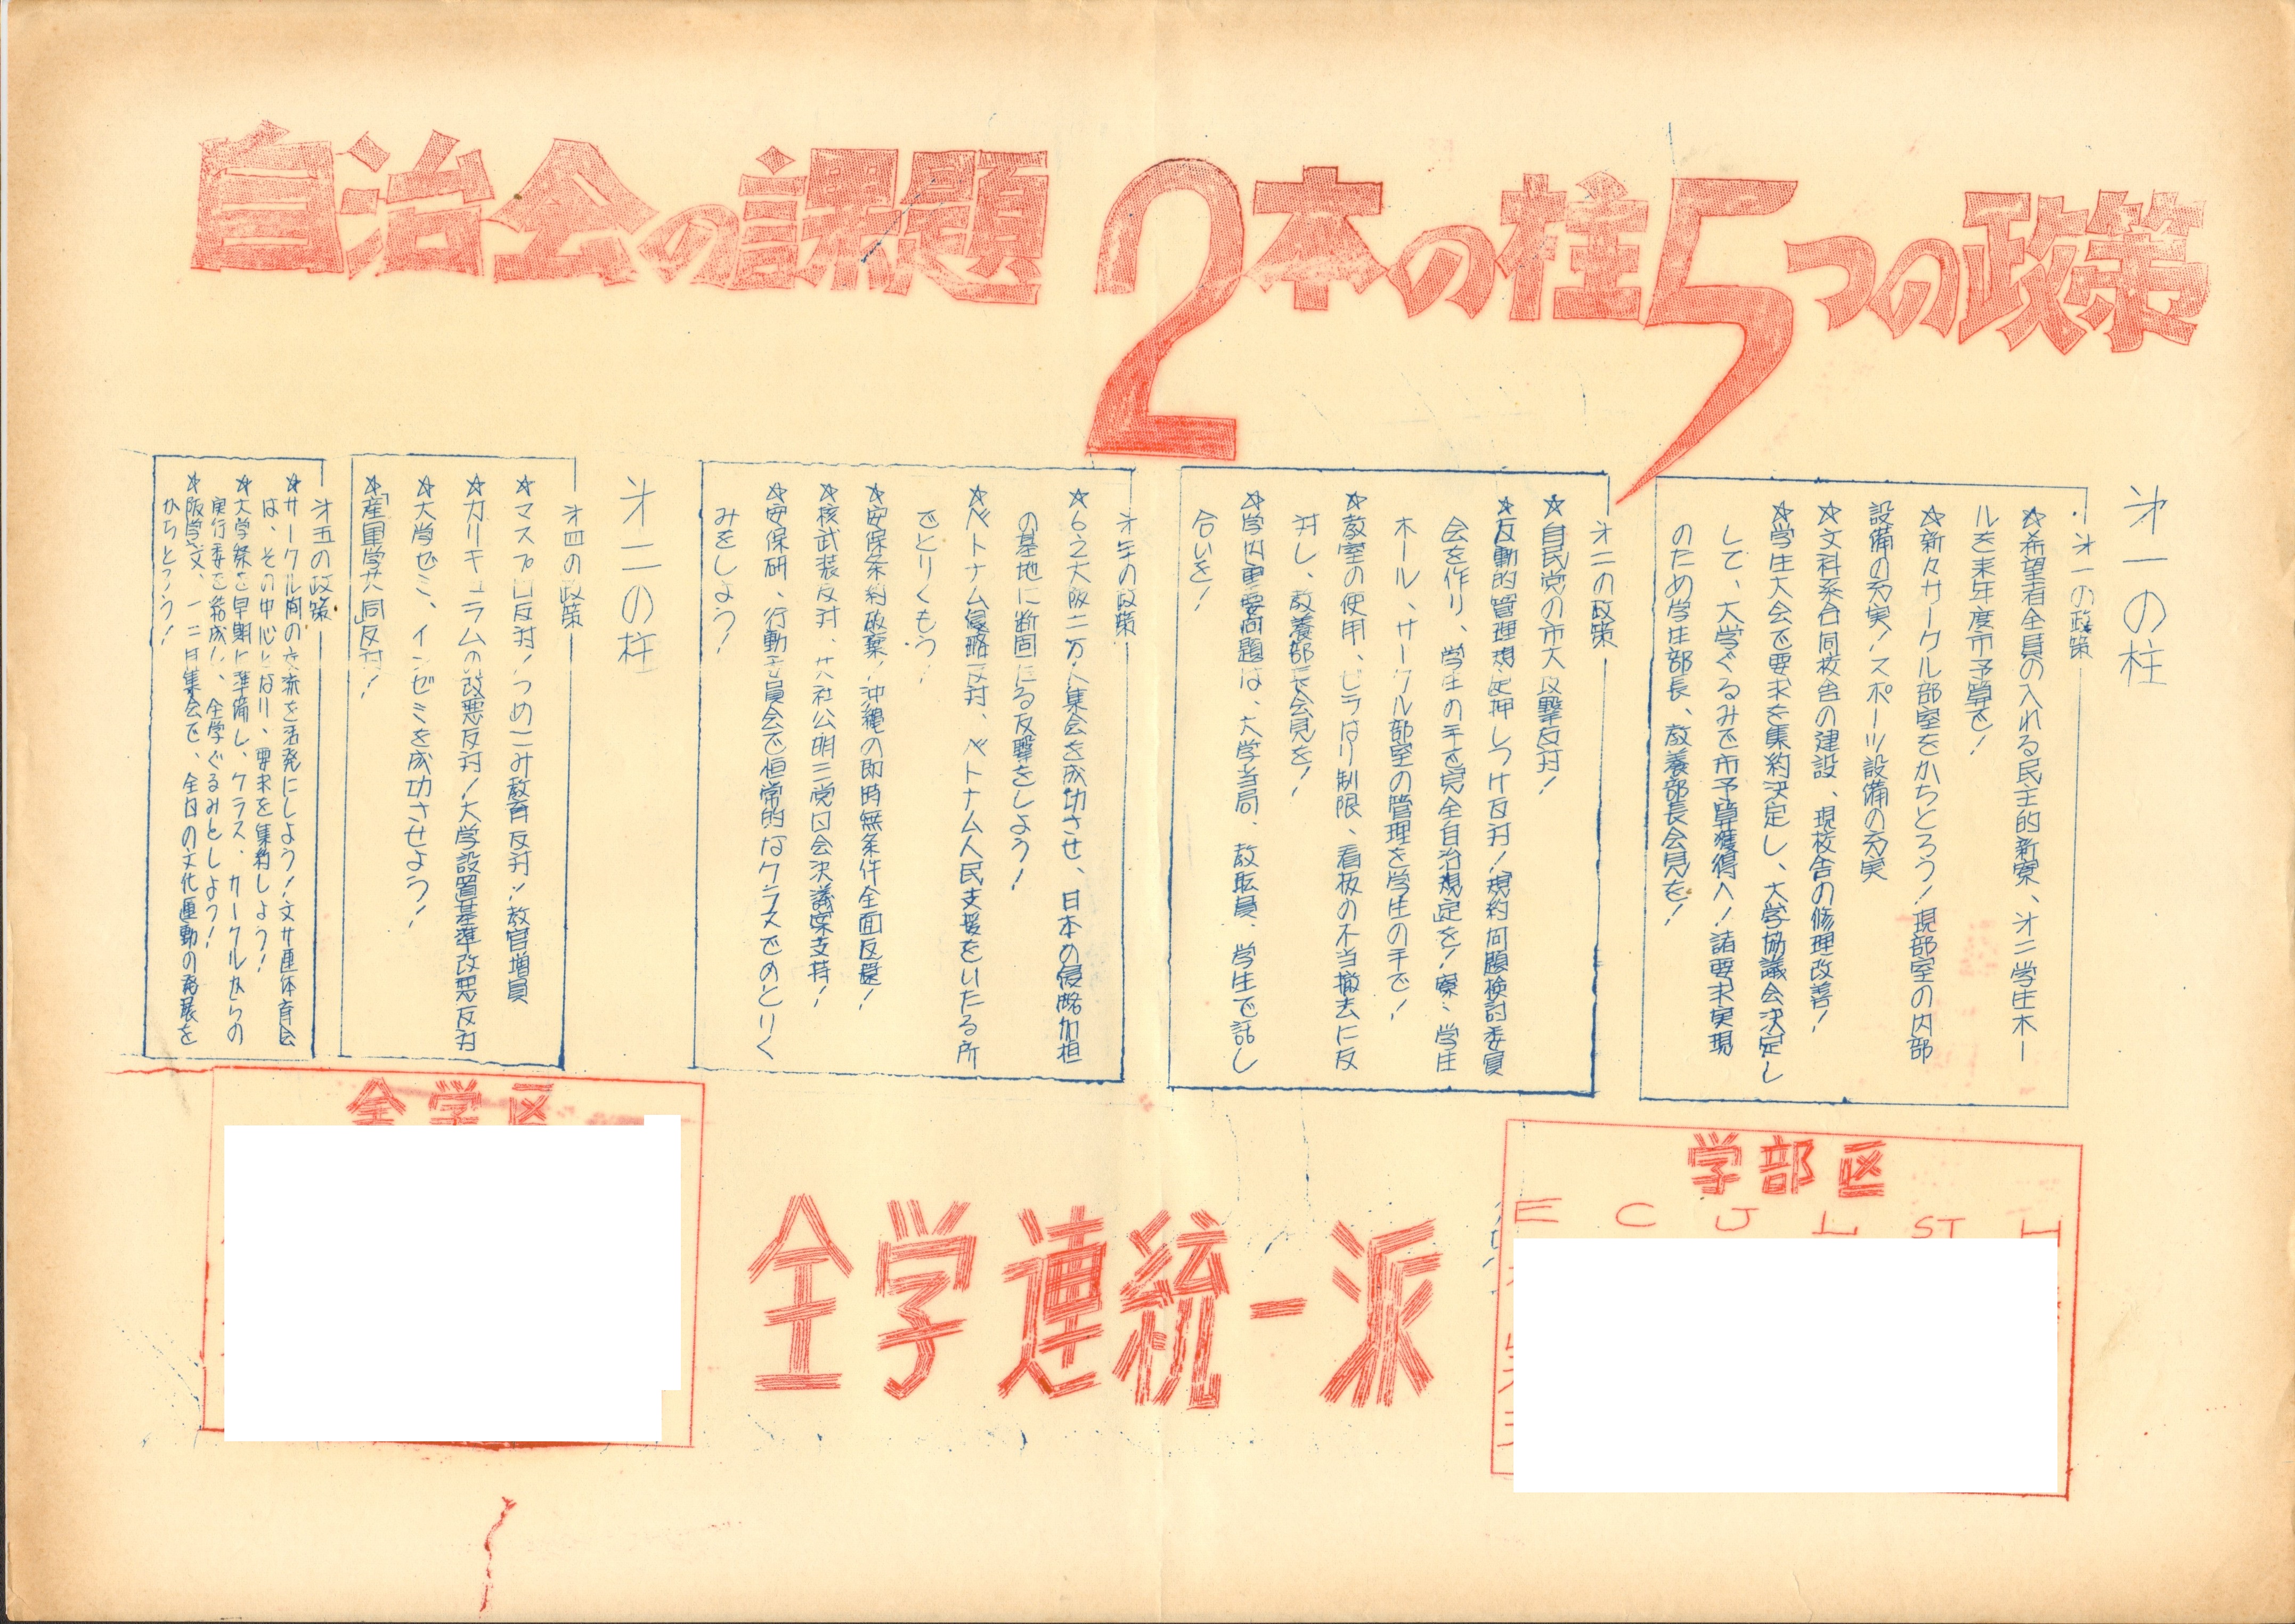 自治会の課題 2本の柱5つの政策
才一の柱
才一の政策
☆希望者全員の入れる民主的新寮、才二学生ホー
ルを来年度市予算で!
☆新々サークル部室をかちとろう!現部室の内部
設備の充実!スポーツ設備の充実
☆文科系合同校舎の建設、現校舎の修理改善!
☆学生大会で要求を集約決定し、大学協議会決定し
して、大学ぐるみで市予算獲得へ!諸要求実現
のため学生部長、教養部長会見を!
才二の政策
☆自民党の市大攻撃反対!
☆反動的管理規定押しつけ反対!規約問題検討委員
会を作り、学生の手で完全自治規定を!寮、学生
ホール、サークル部室の管理を学生の手で!
☆教室の使用、ビラはり制限、看板の不当撤去に反
対し、教養部長会見を!
☆学内重要問題は、大学当局、教職員、学生で話し
合いを!
才三の政策
☆6・2大阪二万人集会を成功させ、日本の侵略加担
の基地に断固たる反撃をしよう!
☆ベトナム侵略反対、ベトナム人民支援をいたる所
でとりくもう!
☆安保条約破棄!沖縄の即時無条件全面反還!
☆核武装反対、共社公明三党国会決議案支持!
☆安保研、行動委員会で恒常的なクラスでのとりく
みをしよう!
才二の柱
才四の政策
☆マスプロ反対!つめこみ教育反対!教官増員
☆カリキュラムの改悪反対!大学設置基準改悪反対
☆大学ゼミ、インゼミを成功させよう!
☆「産軍学共同」反対!
才五の政策
☆サークル間の交流を活発にしよう!文サ連体育会
は、その中心となり、要求を集約しよう!
☆大学祭を早期に準備し、クラス、サークルからの
実行委を結成し、全学ぐるみとしよう!
☆阪学文、一二月集会で、全日の文化運動の発展を
かちとろう!
全学区
全学連統一派
学部区
E C J L ST H